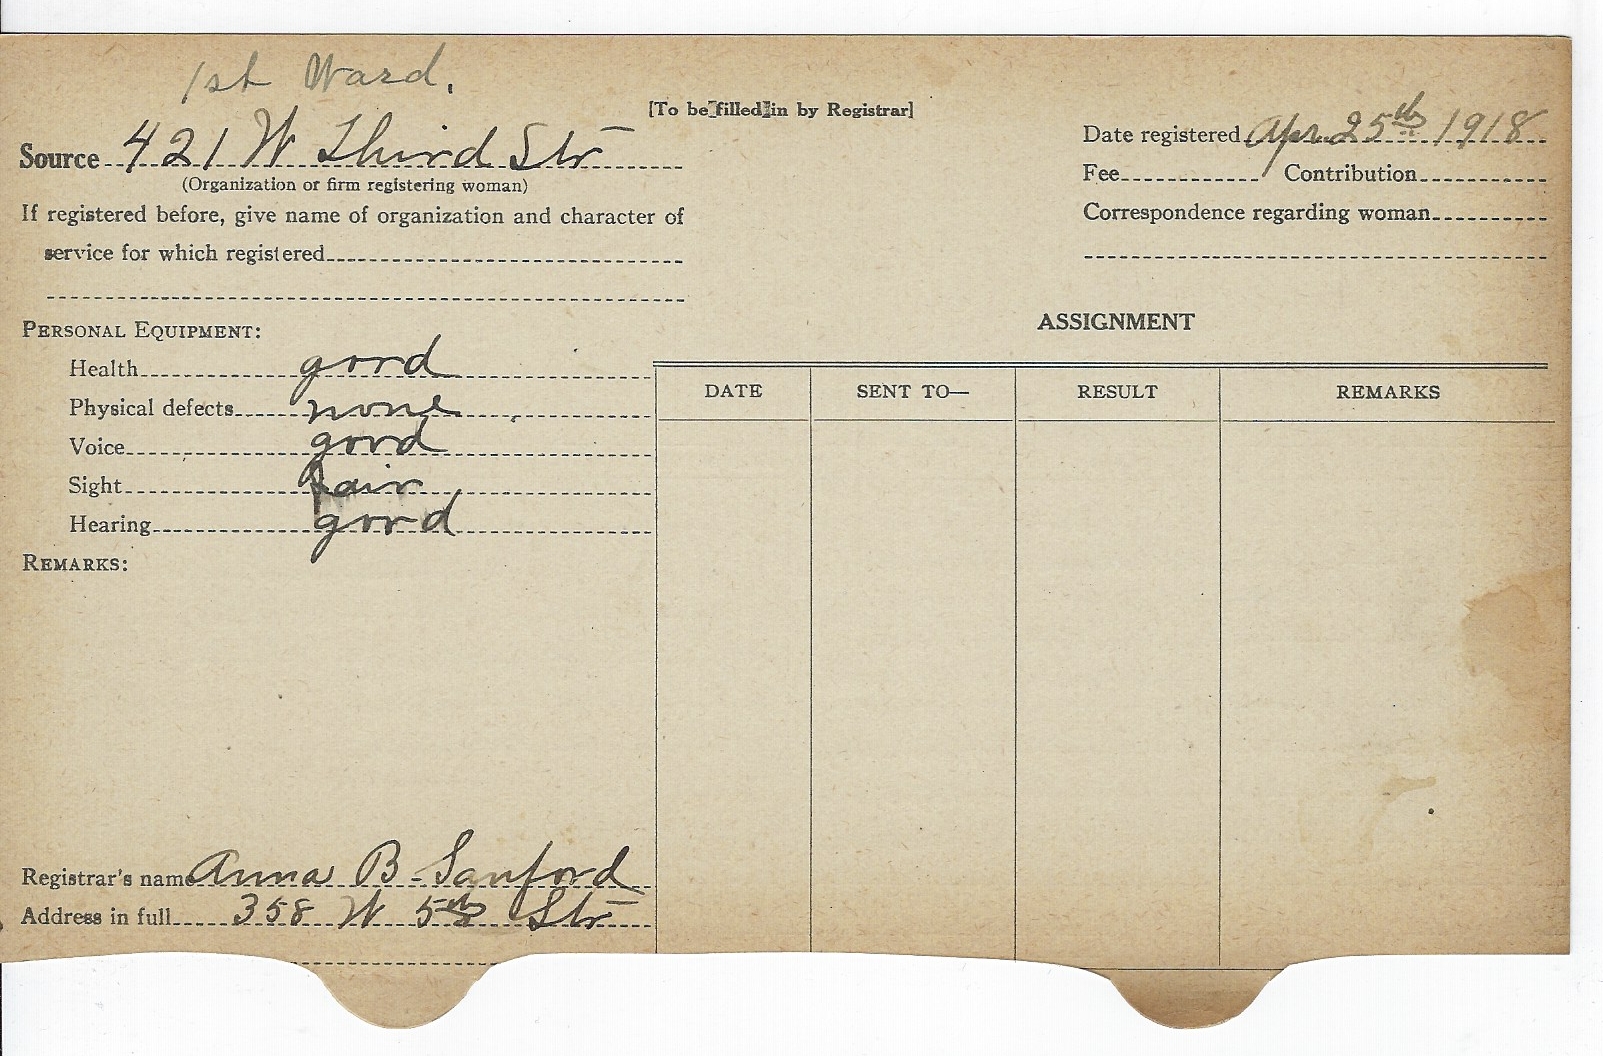 1st Ward.
[To be filled in by Registrar]
Source 421 W Third Str
(Organization or firm registering woman)
If registered before, give name of organization and character of
service for which registered
Date registered Apr 25th 1918
Fee Contribution
Correspondence regarding woman
PERSONAL EQUIPMENT:
Health good
Physical defects none
Voice good
Sight fair
Hearing good
REMARKS:
Registrar's name Anna B. Sanford
Address in full 358 W 5th Str
ASSIGNMENT
DATE SENT TO— RESULT REMARKS